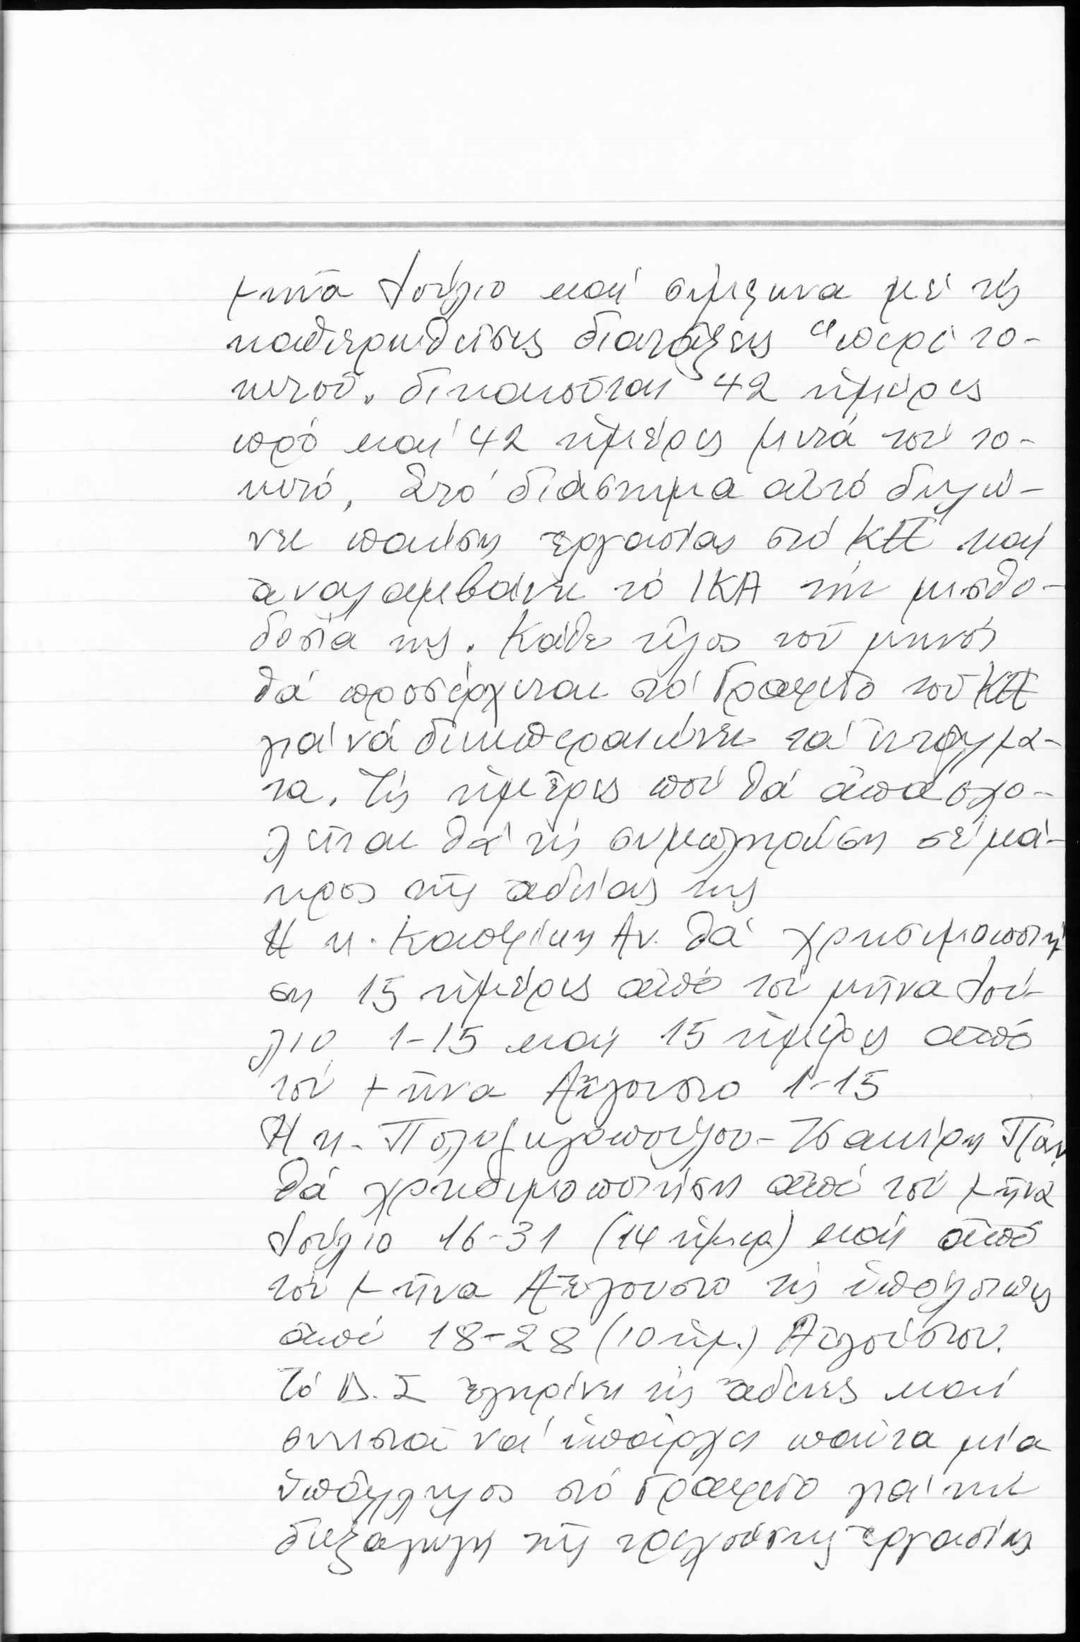 μῆνα Ἰούλιο καί σύμφωνα μέ τίς
καθιερωθεῖσες διατάξεις "περί το-
κετοῦ. δικαιοῦται 42 ἡμέρες
πρό καί 42 ἡμέρες μετά τόν το-
κετό, Στό διάστημα αὐτό δηλώ-
νει παύση ἐργασίας στό ΚΠ καί
ἀναλαμβάνει τό ΙΚΑ τήν μισθο-
δοσία της. Κάθε τέλος τοῦ μηνός
θά προσέρχεται στό Γραφεῖο τοῦ ΚΠ
γιά νά διεκπεραιώνει τά
τα. Τίς ἡμέρες πού θά ἀπασχο-
λεῖται θά τίς συμπληρώση σέ μά-
κρος τῆς ἀδείας της
Η κ. Αν. θά χρησιμοποιή
ση 15 ἡμέρες ἀπό τόν μῆνα Ἰού-
λιο 1-15 καί 15 ἡμέρες ἀπό
τόν μῆνα Αὔγουστο 1-15
Η κ. Παν
θά χρησιμοποιήση ἀπό τόν μῆνα
Ἰούλιο 16-31 (14 ἡμερ) καί ἀπό
τόν μῆνα Αὔγουστο τίς ὑπόλοιπες
ἀπό 18-28 (10 ἡμ.) Αὐγούστου.
Τό Δ.Σ ἐγκρίνει τίς ἄδειες καί
συνιστᾶ νά ὑπάρχει πάντα μία
ὑπάλληλος στό Γραφεῖο γιά τήν
διεξαγωγή τῆς τρεχούσης ἐργασίας